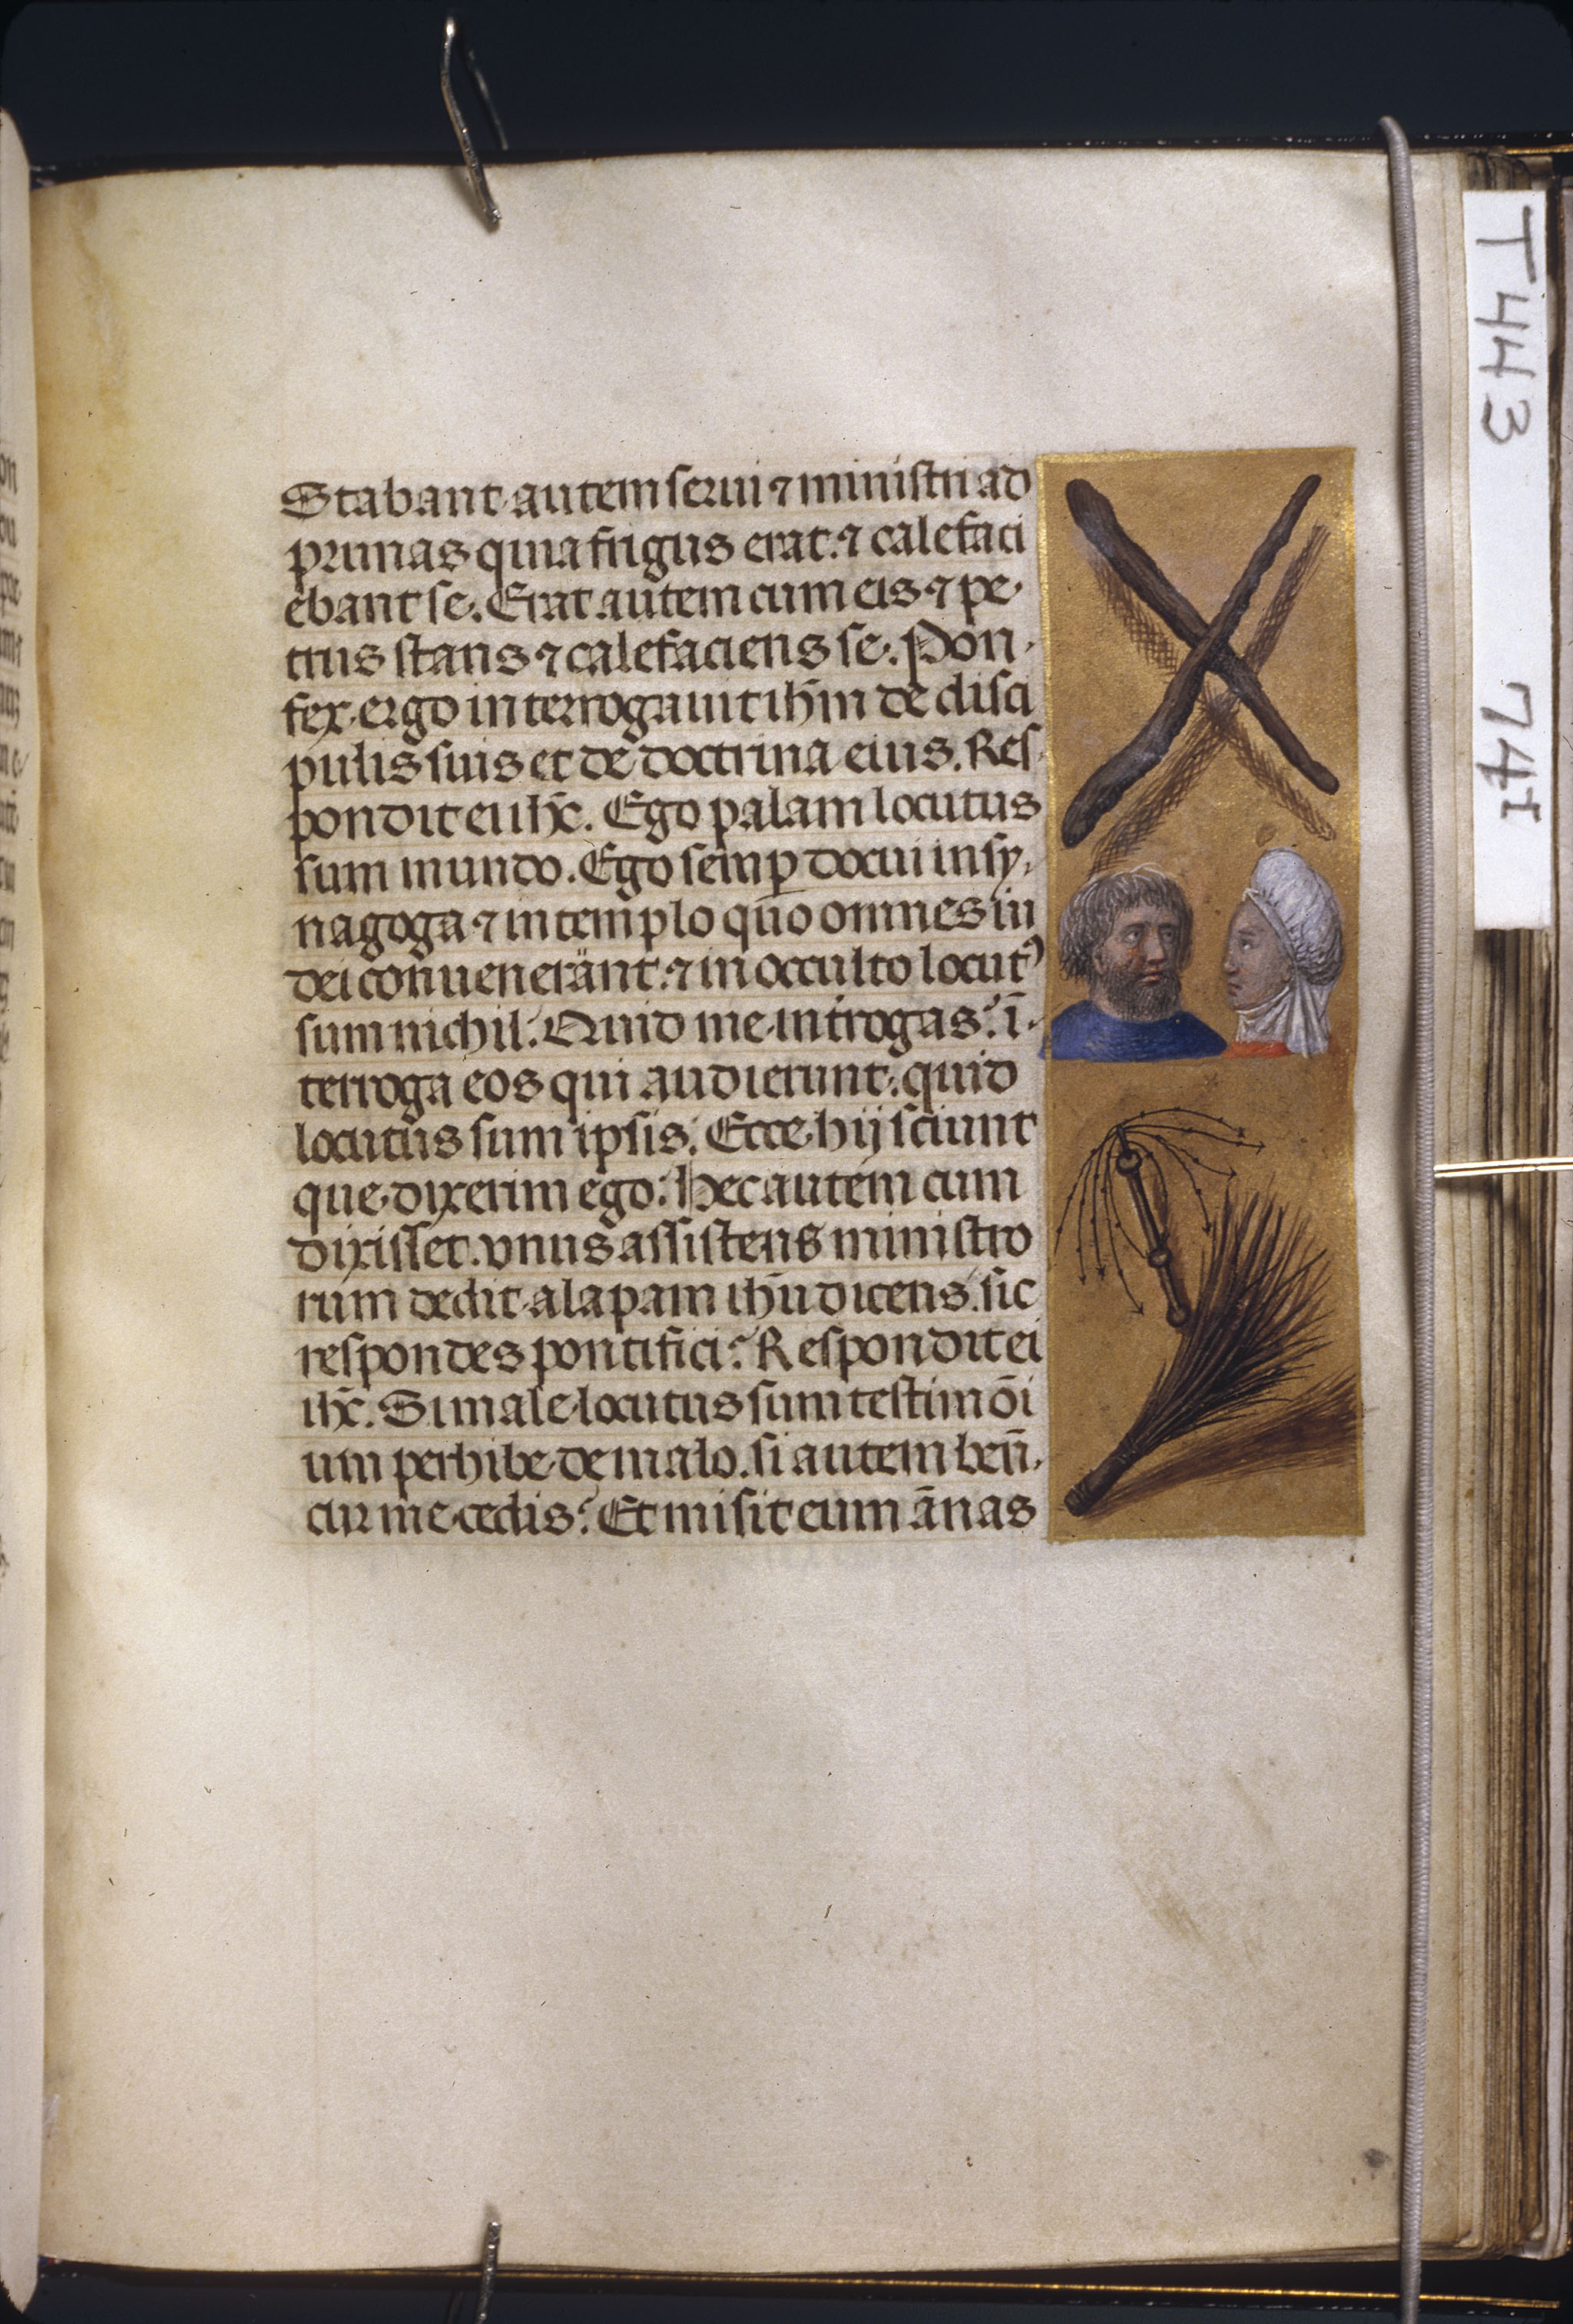 Stabant autem serui ⁊ ministri ad
prunas quia frigus erat. ⁊ calefaci
ebant se. Erat autem cum eis ⁊ pe
trus stans ⁊ calefaciens se. Pon
fex ergo interrogauit ihm̄ de disci
pulis suis et de doctrina eius. Res
pondit ei ihc̄. Ego palam locutus
sum mundo. Ego semꝑ docui in sy
nagoga ⁊ in templo quo omnes iu
dei conuenerant. ⁊ in occulto locutꝰ
sum nichil. Quid me introgas? ī
terroga eos qui audierunt. quid
locutus sum ipsis. Ecce hij sciunt
que dixerim ego. Hec autem cum
dixisset. vnus assistens ministro
rum dedit alapam ihū dicens. sic
respondes pontifici? Respondit ei
ihc̄. Si male locutus sum testimōi
um perhibe de malo. si autem ben̄
cur me cedis? Et misit eum ānas
T443
74r